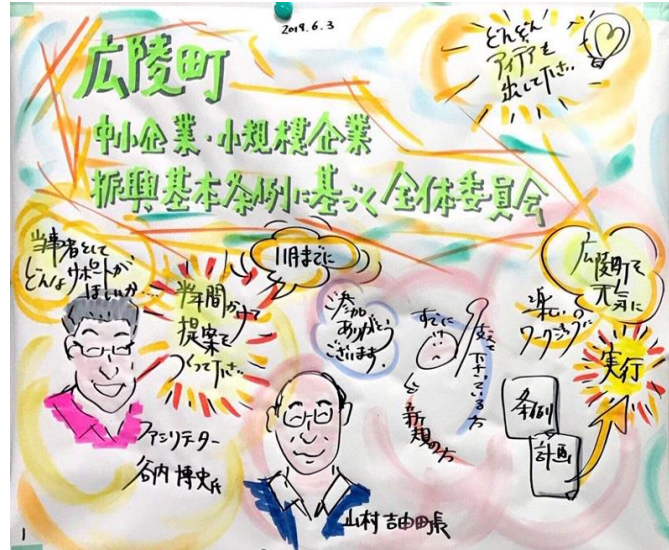 2019.6.3
広陵町
中小企業・小規模企業
振興基本条例に基づく全体委員会
どんどん
アイデアを
出して下さい
当事者として
どんなサポートが
ほしいか
半年間かけて
提案を
つくって下さい
11月までに
参加
ありがとう
ございます。
すでに
支えて下さっている方
新規の方
広陵町を
元気に
楽しい
ワークショップに
実行
条例
計画
ファシリテーター
谷内博史氏
山村吉由町長
1